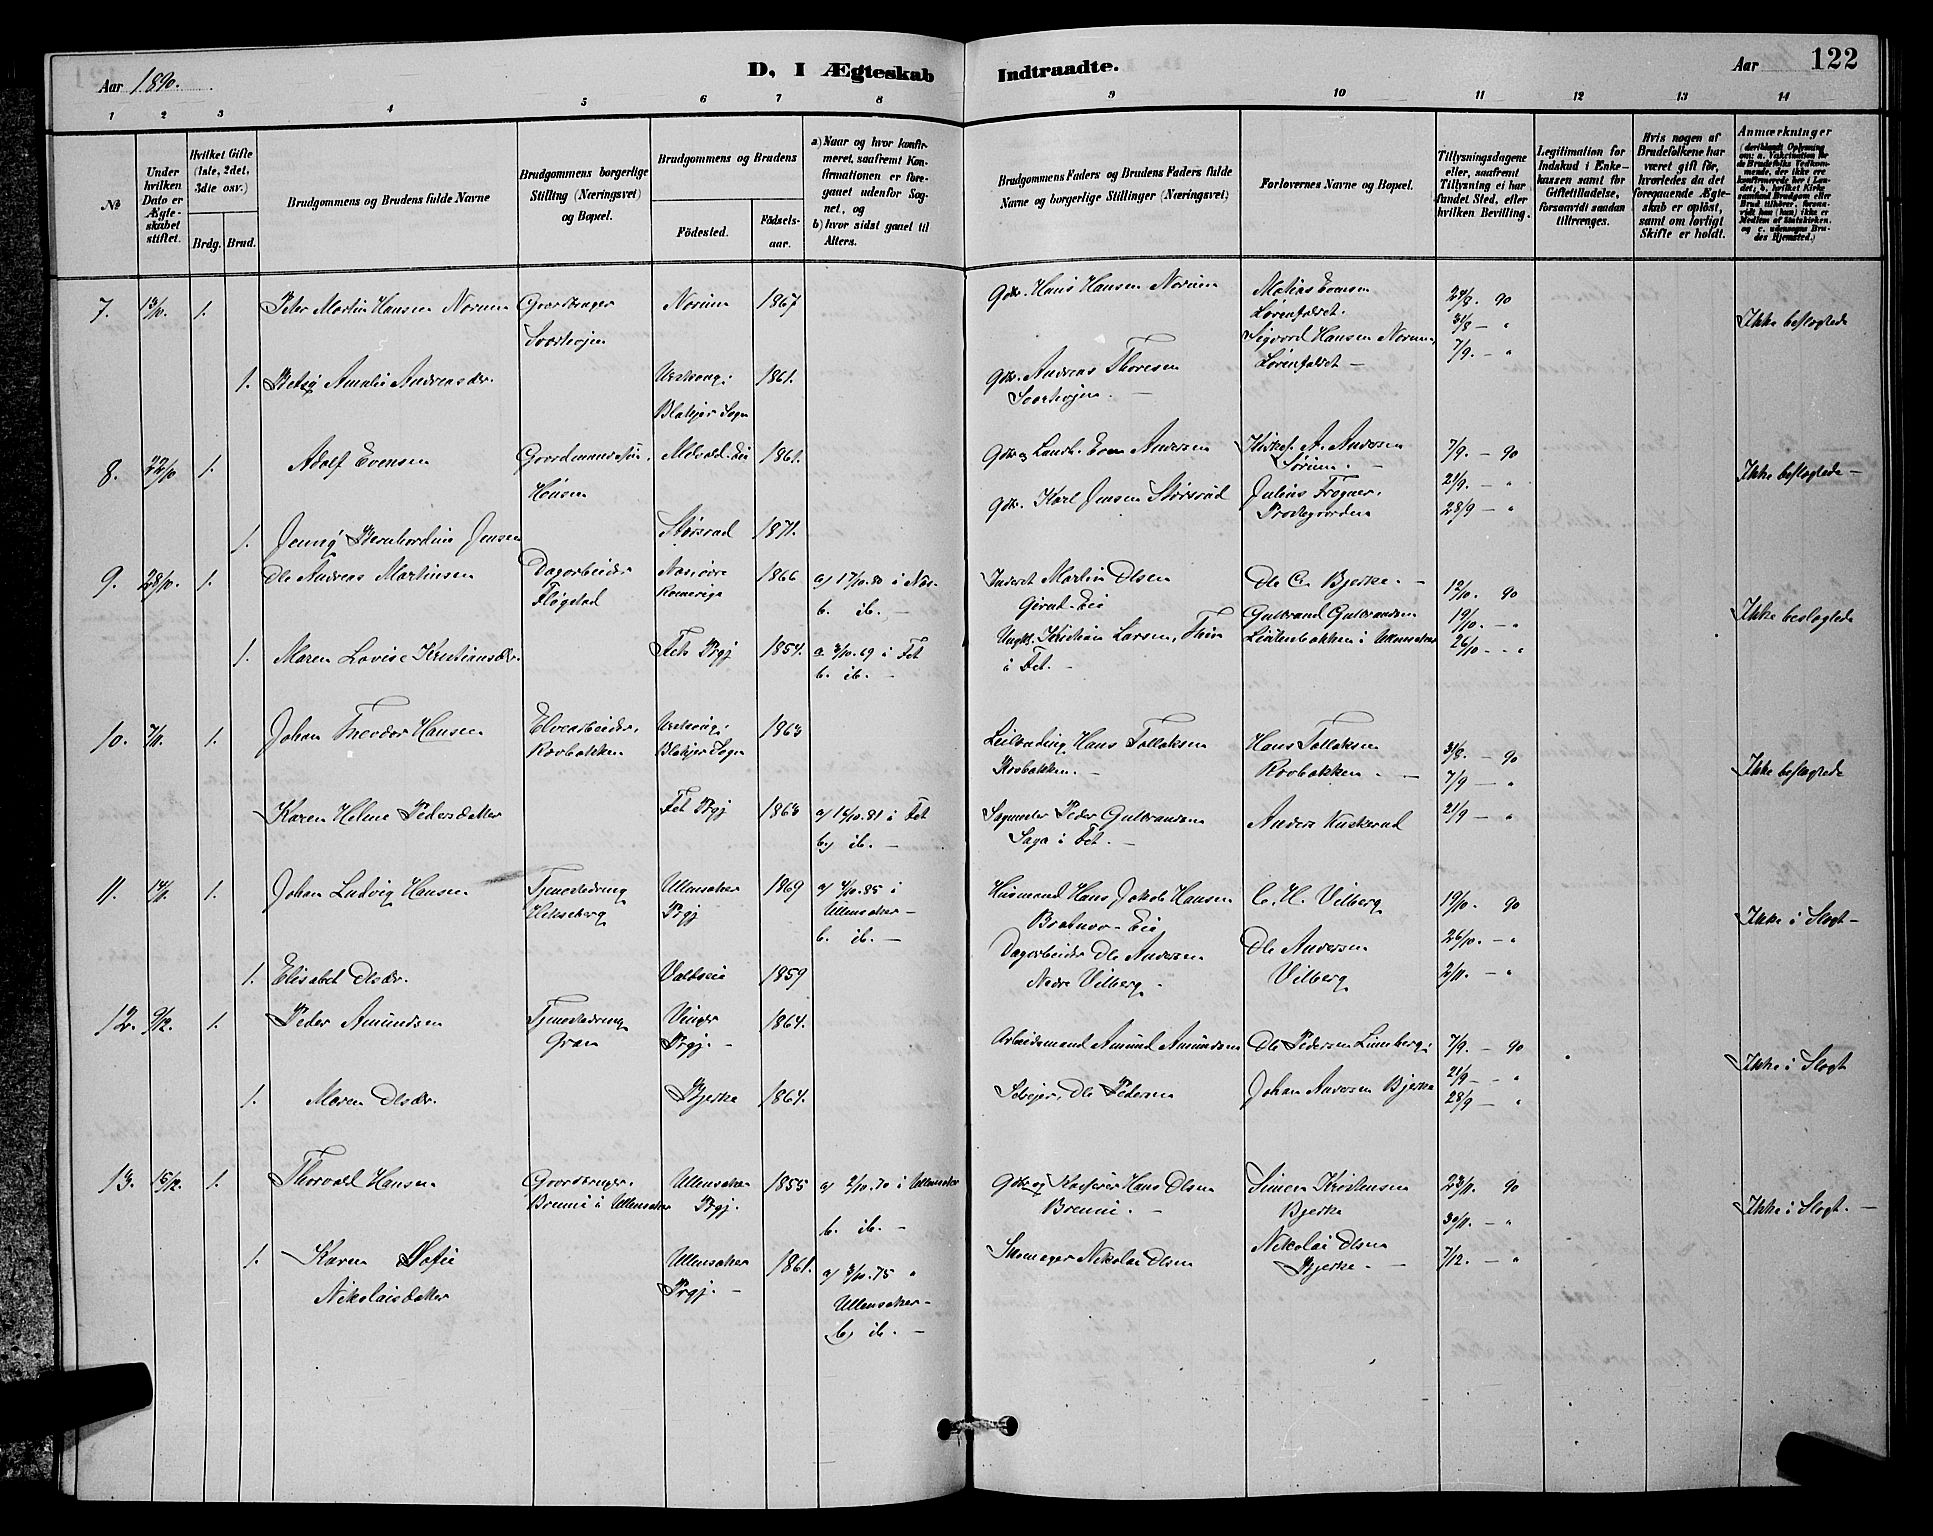 Aar 1890.
D, I Ægteskab
Indtraadte.
Aar
122
1 2 3 4 5 6 7 8 9 10 11 12 13 14
№
Under hvilken Dato er Ægteskabet stiftet.
Hvilket Gifte (1ste, 2det, 3die osv.)
Brdg. Brud.
Brudgommens og Brudens fulde Navne
Brudgommens borgerlige Stilling (Næringsvei) og Bopæl.
Brudgommens og Brudens
Fødested.
Fødselsaar.
a) Naar og hvor konfirmeret, saafremt Konfirmationen er foregaaet udenfor Sognet, og
b) hvor sidst gaaet til Alters.
Brudgommens Faders og Brudens Faders fulde Navne og borgerlige Stillinger (Næringsvei)
Forlovernes Navne og Bopæl.
Tillysningsdagene eller, saafremt Tillysning ei har fundet Sted, efter hvilken Bevilling.
Legitimation for Indskud i Enkekassen samt for Giftetilladelse, forsaavidt saadan tiltrænges.
Hvis nogen af Brudefolkene har været gift før, hvorledes da det foregaaende Ægteskab er opløst, samt om lovligt Skifte er holdt.
Anmærkninger
7. 13/10. 1. Peter Martin Hansen Norum Gaardbruger Norum 1867 Gbr. Hans Hansen Norum Matias Evensen 24/8. 90
Lørenfaldet. 31/8 - " Ikke beslægtede
Svarthejen Sigvard Hansen Norum, 7/9. - "
1. Betzy Amalie Andreasdr. Urskoug; 1861. Gbr. Andreas Thoresen Lørenfaldet -
Blakjer Sogn Svarthejen. -
8. 22/10 1. Adolf Evensen Gaardmandssøn, 1861. Gbr. og Landh. Even Andersen Kirkes. A. Andersen 7/9. - 90
Sørum. - 21/9. - " Ikke beslægtede -
Gbr. Karl Jensen Størsrud Julius Frogner, 28/9 - "
Præstegaarden
1. Jenny Bernhardine Jensen Størsrud 1871.
9. 28/10. 1. Ole Andreas Martinsen Dagarbeider 1866 a) 17/10.80 i Næs. Inderst Martin Olsen Ole C. Bjerke. - 12/10. 90
Fløgstad Romerige b. ib. - Eie Gulbrand Gulbrandsen 19/10. - " Ikke beslægtede
1. Maren Lovise Kristiansdr. Fet Prgj 1854. a. 3/10.69 i Fet Kristian Larsen, i Ullensaker 26/10 - - "
b. ib. - i Fet. -
10. 7/11. 1. Johan Theodor Hansen Elvearbeider, Urskoug; 1863 Leilending Hans Tollaksen Hans Tollaksen 31/8. - 90
Rovbakken Blakjer Sogn Rovbakken. - Rovbakken. - 7/9 - " Ikke beslægtede
Karen Helene Pedersdatter Fet Prgj 1863 a) 14/10.81 i Fet Sagmester Peder Gulbrandsen 21/9 - "
b) ib. - Saga i Fet. -
11. 14/11. 1. Johan Ludvig Hansen Tjenestedreng Ullensaker 1869 a) 4/10.85 i Husmand Hans Jakob Hansen C. H. Vilberg 19/10. 90
Prgj Ullensaker - Eie 26/10. - " Ikke i Slægt -
b. ib. - Dagarbeider Ole Andersen Ole Andersen
1. Elisabet Olsdr. 1859 Nedre Vilberg - Vilberg 2/11. - "
12. 9/12. 1. Peder Amundsen Tjenestedreng Vinger 1864. Arbeidsmand Amund Amundsen Ole Pedersen Limberg; 7/9. - 90
Gran Prgj. - 21/9 - - " Ikke i Slægt
1. Maren Olsdr. Bjerke 1864. Selvejer, Ole Pedersen Johan Andersen Bjerke 28/9 - "
13. 15/12. 1. Thorvald Hansen Gaardbruger. Ullensaker 1855 a) 2/10.70 i Ullensaker Gbr. og Hans Olsen Simen Kristensen 23/11. 90
i Ullensaker Prgj. b. ib. - Bjerke 30/11. - " Ikke i Slægt. -
1. Karen Sofie Ullensaker 1861. a) 3/10.75 " Skomager Nikolai Olsen Nikolai Olsen 7/12. - "
Nikolaisdatter Prgj. - Ullensaker - Bjerke. -
b) ib. -